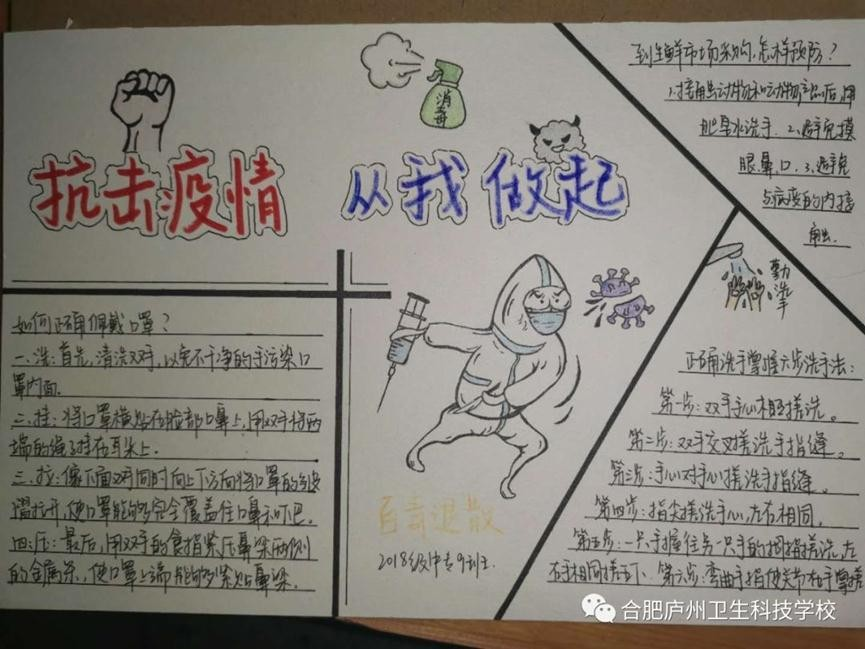 抗击疫情 从我做起
消毒
到生鲜市场采购,怎样预防?
1.接触动物和动物产品后,用
肥皂水洗手. 2.避免摸
眼.鼻.口. 3.避免
与病变的肉接
触.
勤洗手
如何正确佩戴口罩?
一.洗:首先,清洗双手,以免不干净的手污染口
罩内面.
二.挂:将口罩横贴在脸部口鼻上,用双手将两
端的绳子挂在耳朵上.
三.拉:双手同时向上下方向将口罩的
褶拉开,使口罩能够完全覆盖住口鼻和下巴。
四.压:最后,用双手的食指紧压鼻梁两侧
的金属条,使口罩上端能够紧贴鼻梁.
百毒退散
2018级中专9班
正确洗手掌握六步洗手法:
第一步:双手手心相搓洗。
第二步:双手交叉搓洗手指缝。
第三步:手心对手心搓洗手指缝。
第四步:指尖搓洗手心,左右相同。
第五步:一只手握住另一只手的拇指搓洗,左
右手相同搓五下、第六步:弯曲手指使关节在手掌搓
合肥庐州卫生科技学校